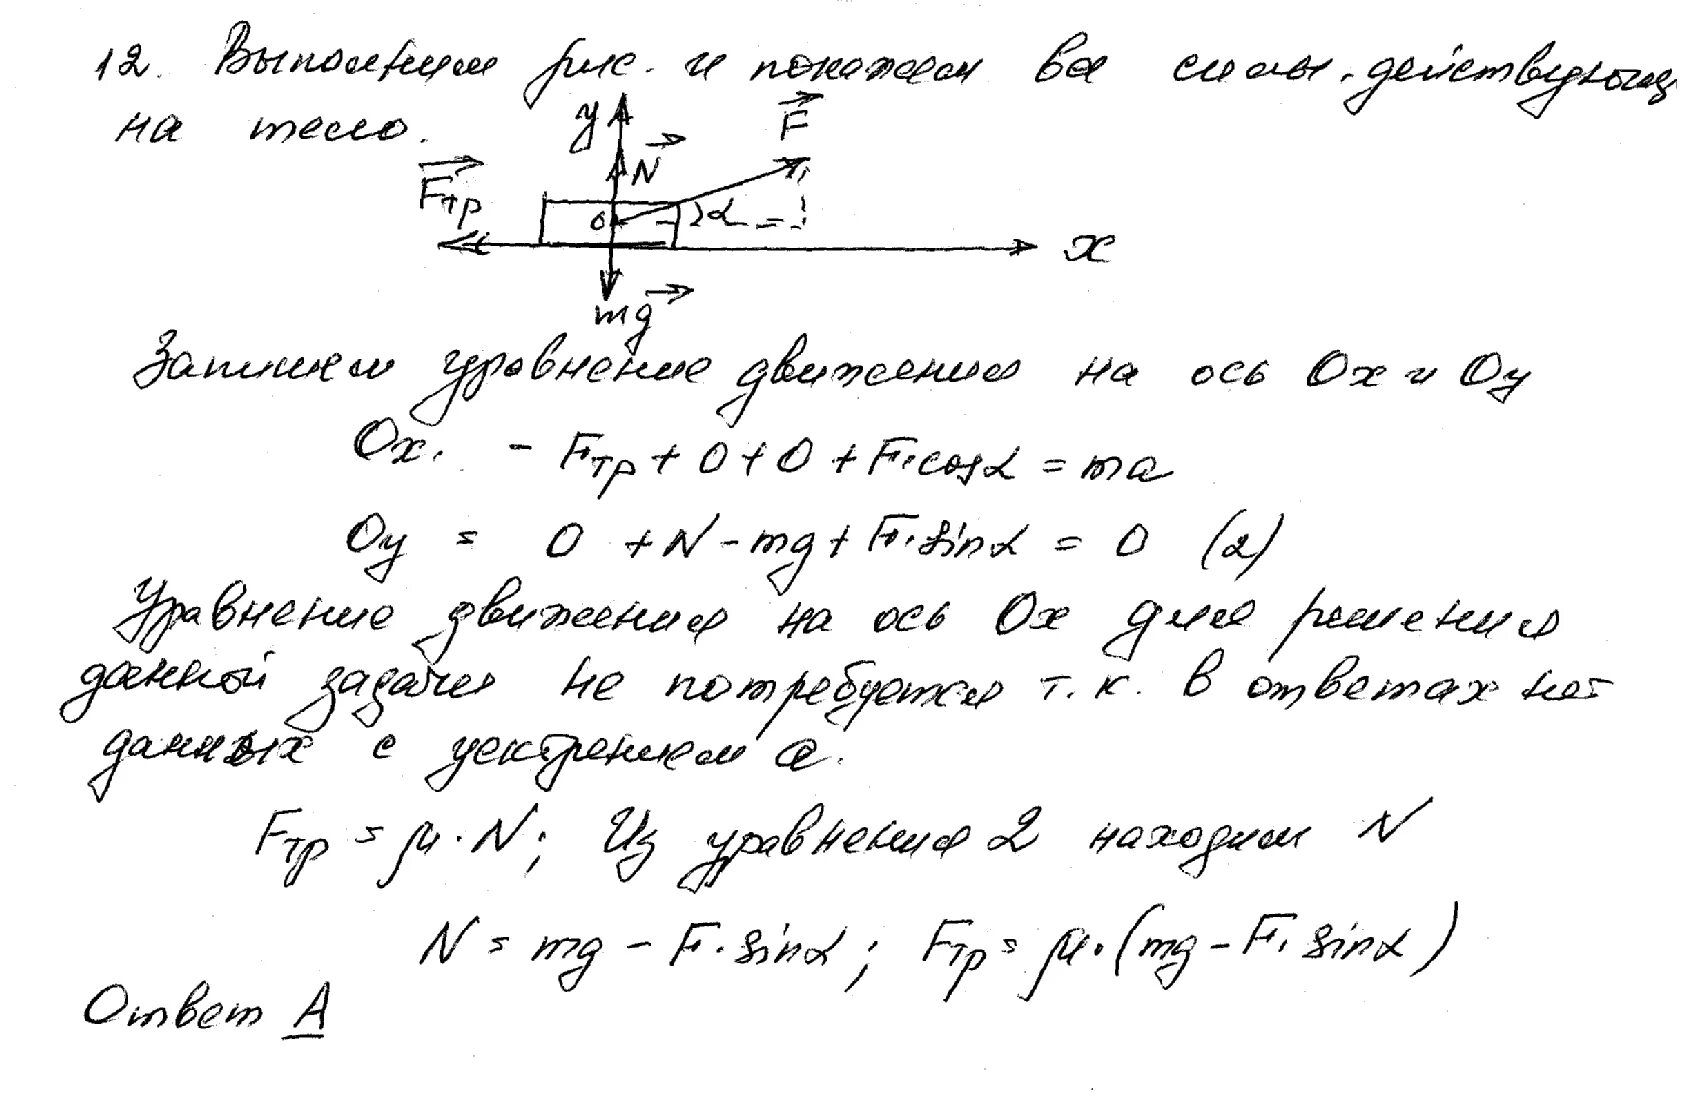 12. Выполним рис. и покажем все силы, действующ
на тело.
y
F
N
Fтр
0
α
x
mg
Запишем уравнение движения на ось Ox и Oy
Ox. - Fтр + 0 + 0 + F·cosα = ma
Oy = 0 + N - mg + F·sinα = 0 (2)
Уравнение движения на ось Ox для решения
данной задачи не потребуется т.к. в ответах нет
данных с ускорением a.
Fтр = μ·N; Из уравнения 2 находим N
N = mg - F·sinα; Fтр = μ·(mg - F·sinα)
Ответ A